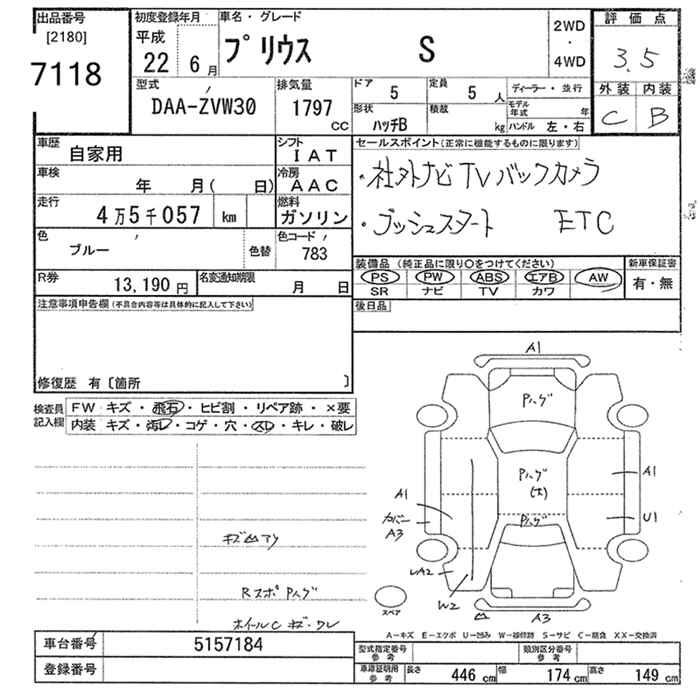 出品番号 初度登録年月 車名・グレード 評価点
[2180] 平成 プリウス S 2WD
7118 22 6月 ・ 3.5
4WD
型式 排気量 ドア 定員 ディーラー・並行 外装 内装
DAA-ZVW30 1797 5 5人 モデル年式 年 C B
cc 形状 ハッチB 積載 kg ハンドル 左・右
車歴 自家用 シフト IAT セールスポイント(正常に機能するものに限ります)
車検 年 月( 日) 冷房 AAC ・社外ナビ TV バックカメラ
走行 4万5千057 km 燃料 ガソリン ・プッシュスタート ETC
色 ブルー 色替 色コード 783
装備品(純正品に限り〇をつけてください) 新車保証書
R券 13,190円 名変通知期限 月 日 PS PW ABS エアB AW 有・無
SR ナビ TV カワ
注意事項申告欄(不具合内容等は具体的に記入して下さい) 後日品
修復歴 有〔箇所 〕
検査員記入欄 FW キズ・飛石・ヒビ割・リペア跡・×要
内装 キズ・汚レ・コゲ・穴・スレ・キレ・破レ
A1
Pハゲ
Pハゲ A1
(大)
A1 Pハゲ U1
カバー
A3
キズ凹アリ
UA2
Rスポ Pハゲ スペア W2 凹 A3
ホイールC キズ・ワレ
A-キズ E-エクボ U-凹み W-補修跡 S-サビ C-腐食 XX-交換済
車台番号 5157184 型式指定番号 参考 類別区分番号 参考
登録番号 車庫証明用 参考 長さ 446cm 幅 174cm 高さ 149cm